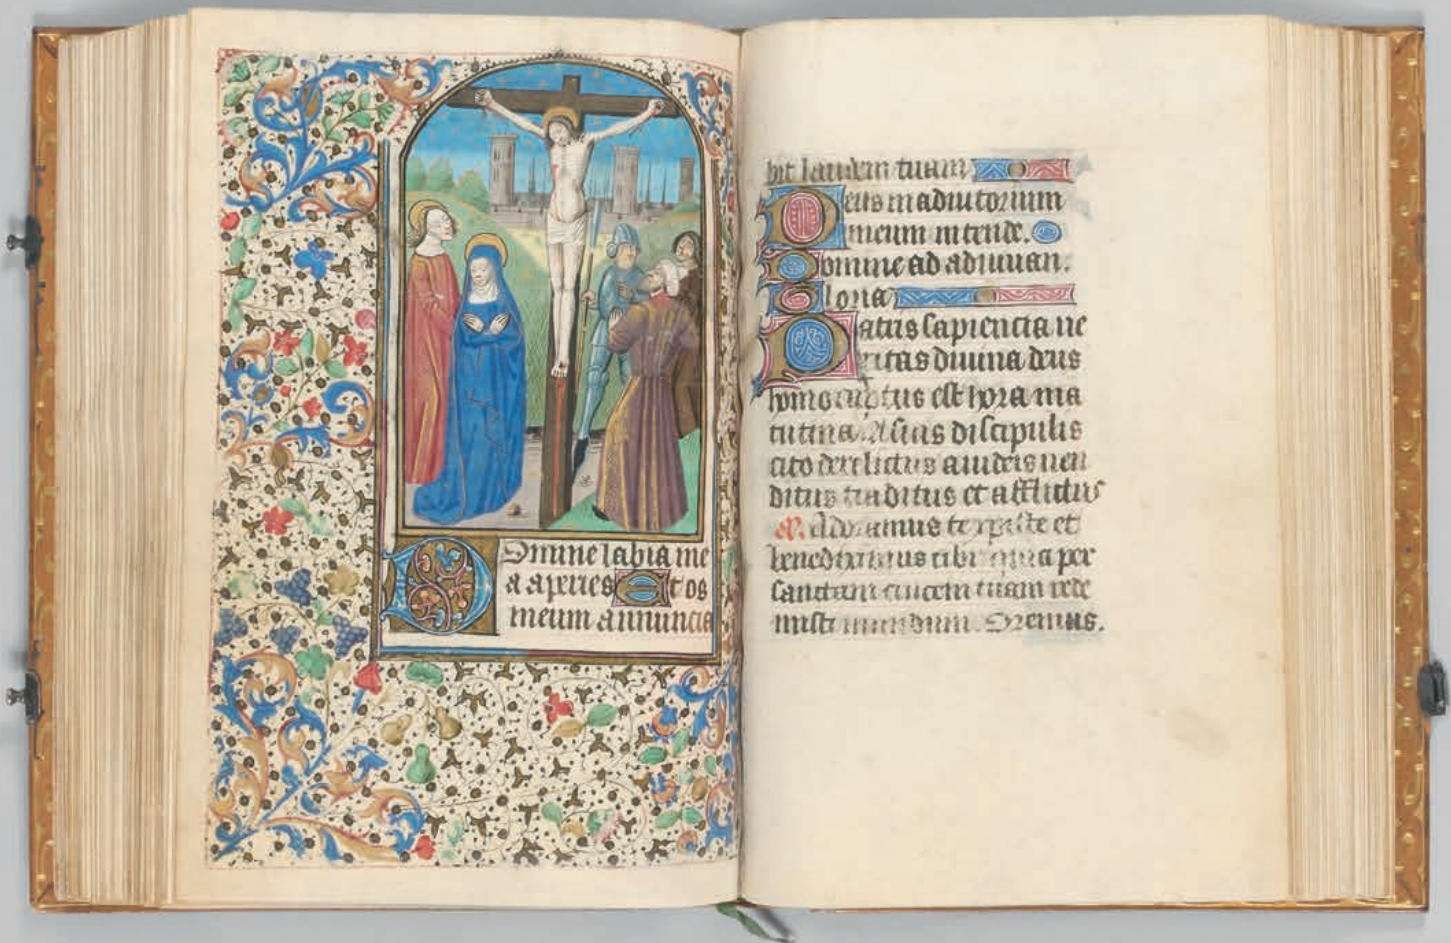 Domine labia me
a aperies Et os
meum annuncia
bit laudem tuam
Deus in adiutorium
meum intende.
Domine ad adiuuan.
Gloria
Patris sapiencia ue
ritas diuina deus
homo captus est hora ma
tutina. A suis discipulis
cito derelictus a iudeis uen
ditus traditus et afflictus
℣. Adoramus te xpriste et
benedicimus tibi quia per
sanctam crucem tuam rede
misti mundum. Oremus.